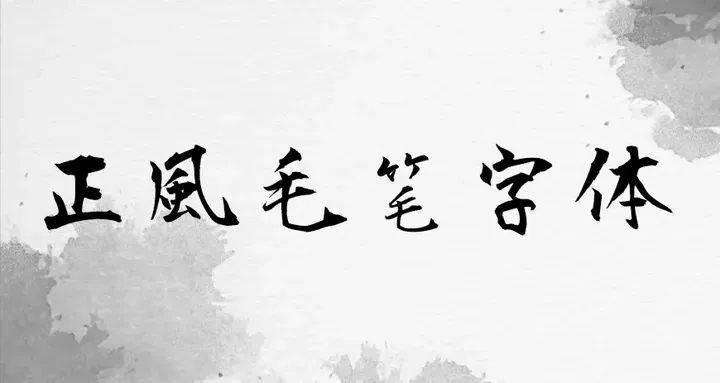 正風毛笔字体